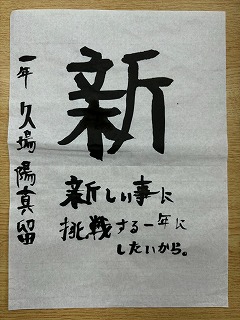 新
新しい事に
挑戦する一年に
したいから。
一年 久場 陽真留